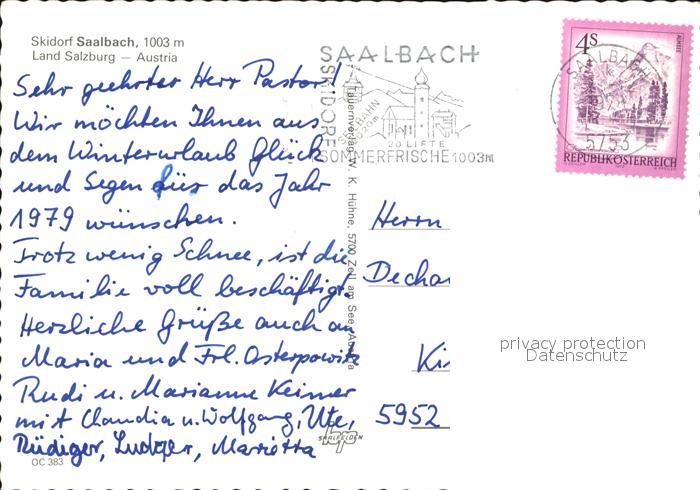 Skidorf Saalbach, 1003 m
Land Salzburg — Austria
Sehr geehrter Herr Pastor!
Wir möchten Ihnen aus
dem Winterurlaub Glück
und Segen für das Jahr
1979 wünschen.
Trotz wenig Schnee, ist die
Familie voll beschäftigt.
Herzliche Grüße auch an
Maria und Frl. Osterpowitz
Rudi u. Marianne Keimer
mit Claudia u. Wolfgang, Ute,
Rüdiger, Ludger, Marietta
OC 383
SAALBACH
SKIDORF
20 LIFTE
SOMMERFRISCHE 1003m
Tauernverlag W. K. Hühne, 5700 Zell am See, Austria
SAALFELDEN
4S
ALMSEE
REPUBLIK ÖSTERREICH
SAALBACH
5753
Herrn
Decha
Ki
5952
privacy protection
Datenschutz